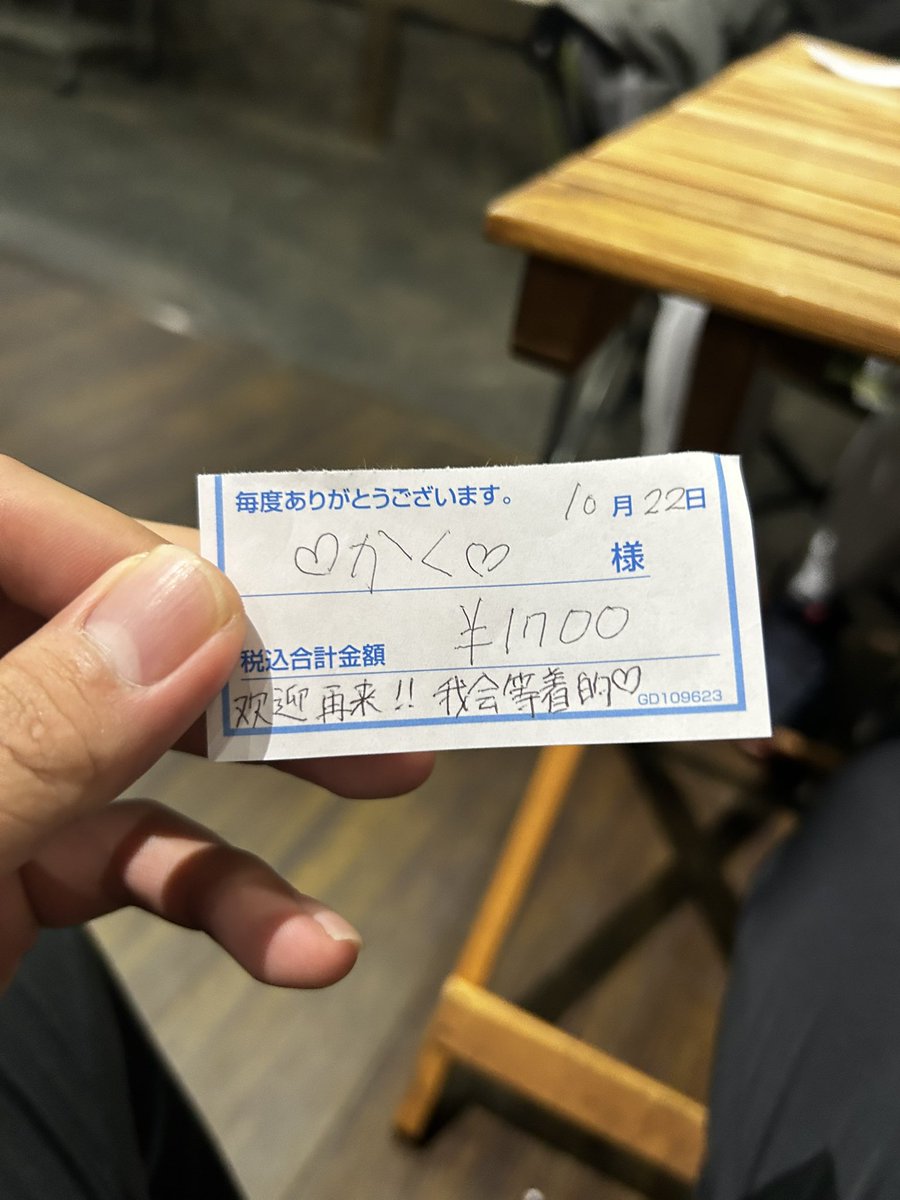 毎度ありがとうございます。 10月22日
♡かく♡ 様
税込合計金額 ¥1700
欢迎再来!! 我会等着的♡ GD109623